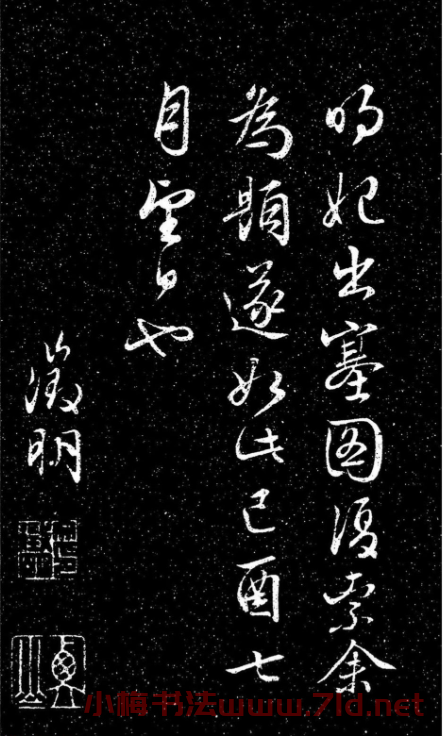 明妃出塞图復索余
為題遂如此己酉七
月望日也
徵明
小梅书法www.7ld.net